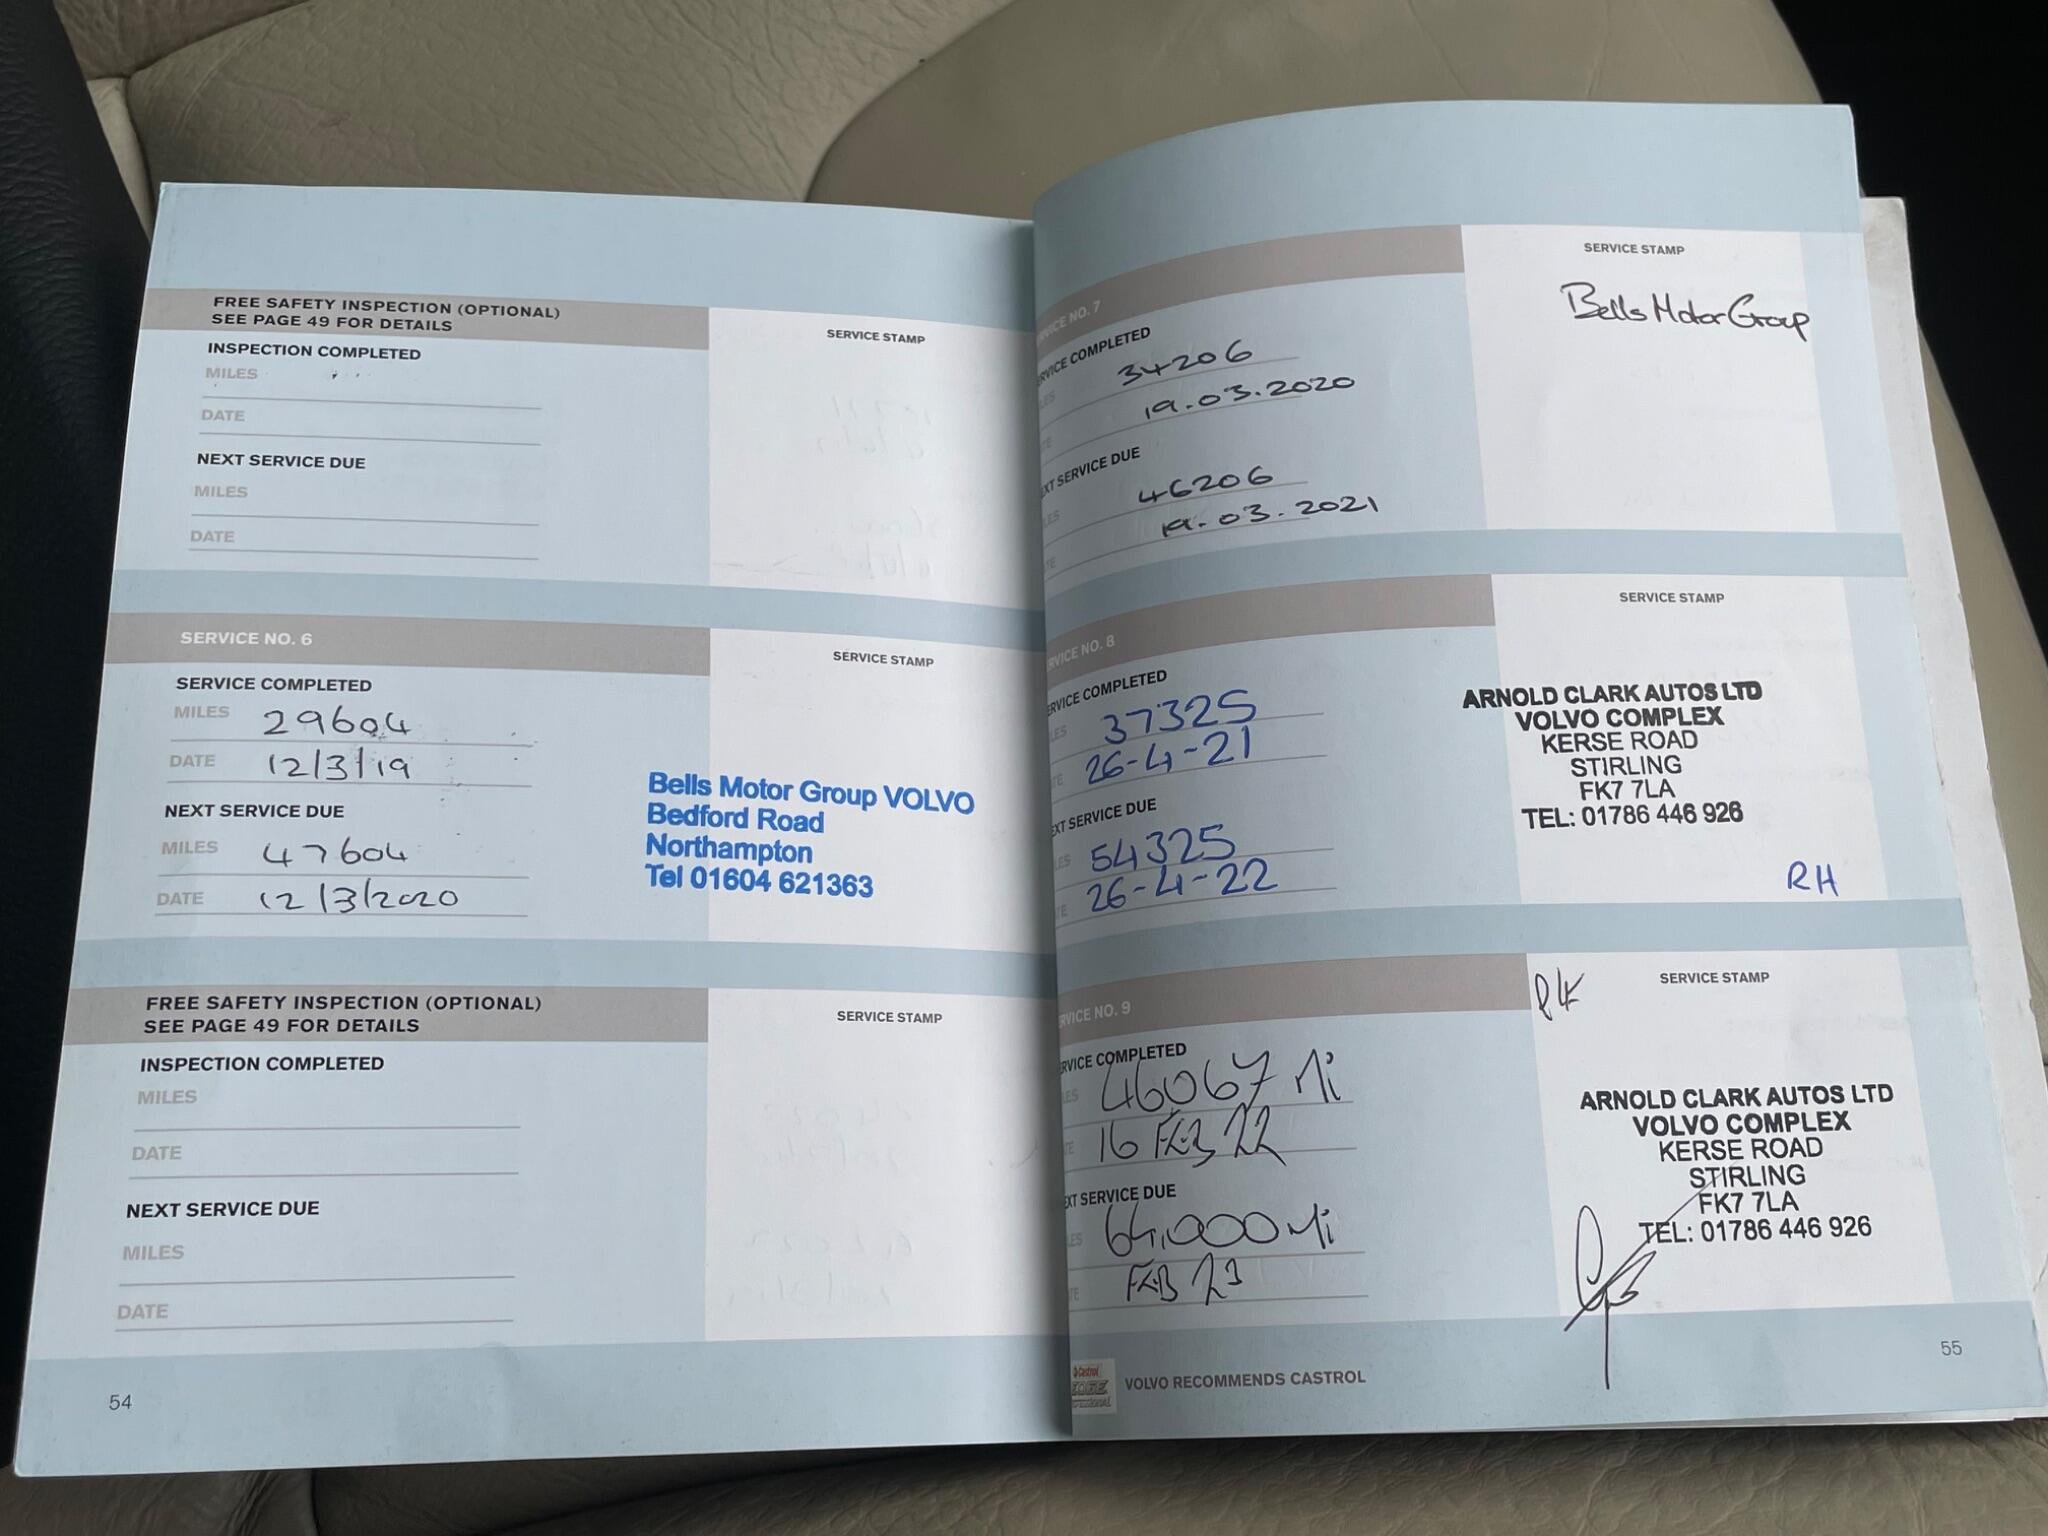 FREE SAFETY INSPECTION (OPTIONAL)
SEE PAGE 49 FOR DETAILS
SERVICE STAMP
INSPECTION COMPLETED
MILES
DATE
NEXT SERVICE DUE
MILES
DATE
SERVICE NO. 6
SERVICE STAMP
SERVICE COMPLETED
MILES 29604
DATE 12/3/19
NEXT SERVICE DUE
MILES 47604
DATE 12/3/2020
Bells Motor Group VOLVO
Bedford Road
Northampton
Tel 01604 621363
FREE SAFETY INSPECTION (OPTIONAL)
SEE PAGE 49 FOR DETAILS
SERVICE STAMP
INSPECTION COMPLETED
MILES
DATE
NEXT SERVICE DUE
MILES
DATE
54
RVICE NO. 7
SERVICE STAMP
Bells Motor Group
RVICE COMPLETED
LES 34206
TE 19.03.2020
EXT SERVICE DUE
LES 46206
TE 19.03.2021
RVICE NO. 8
SERVICE STAMP
RVICE COMPLETED
LES 37325
TE 26-4-21
EXT SERVICE DUE
LES 54325
TE 26-4-22
ARNOLD CLARK AUTOS LTD
VOLVO COMPLEX
KERSE ROAD
STIRLING
FK7 7LA
TEL: 01786 446 926
RH
RVICE NO. 9
SERVICE STAMP
RVICE COMPLETED
LES 46067 Mi
TE 16 FEB 22
EXT SERVICE DUE
LES 64,000 Mi
TE FEB 23
ARNOLD CLARK AUTOS LTD
VOLVO COMPLEX
KERSE ROAD
STIRLING
FK7 7LA
TEL: 01786 446 926
Castrol
EDGE
VOLVO RECOMMENDS CASTROL
55